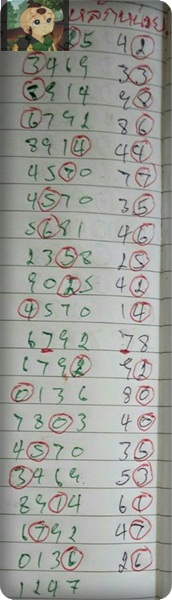 หลักหน่วย
5 42
3469 33
8914 98
6792 86
8914 44
4570 77
4570 35
5681 46
2358 25
9025 42
4570 14
6792 78
6792 92
0136 80
7803 40
4570 35
3469 53
8914 61
6792 47
0136 26
1247